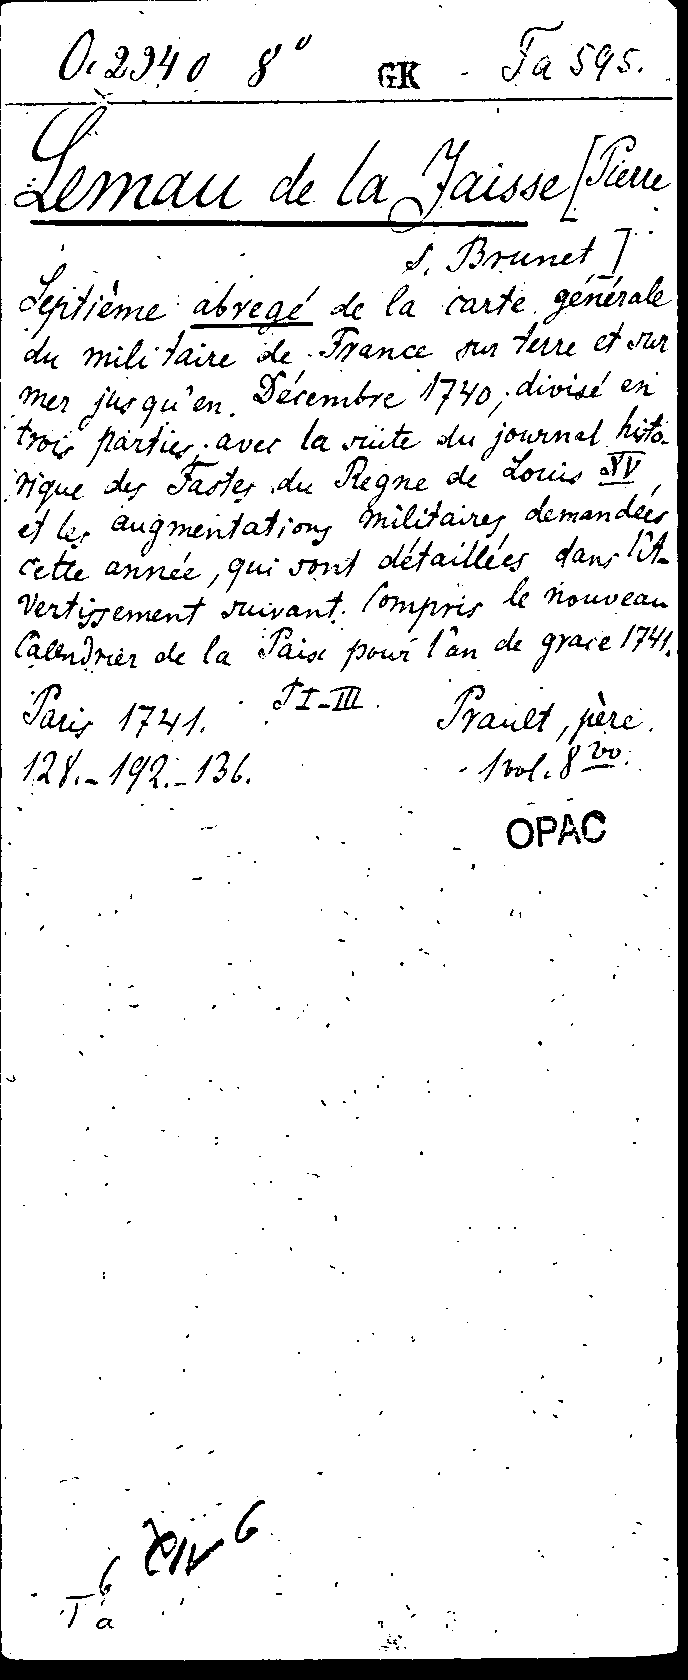 O. 2940 8° GK Ta 595.
Lemau de la Jaisse [Pierre
s. Brunet]
Septième abregé de la carte générale
du militaire de France sur terre et sur
mer jusqu'en Décembre 1740, divisé en
trois parties, avec la suite du journal histo-
rique des Fastes du Regne de Louis XV,
et les augmentations militaires demandées
cette année, qui sont détaillées dans l'A-
vertissement suivant. Compris le nouveau
Calendrier de la Paix pour l'an de grace 1741.
Paris 1741. T I-III. Prault, père.
128.-192.-136. 1 vol. 8vo.
OPAC
6
6
Ta